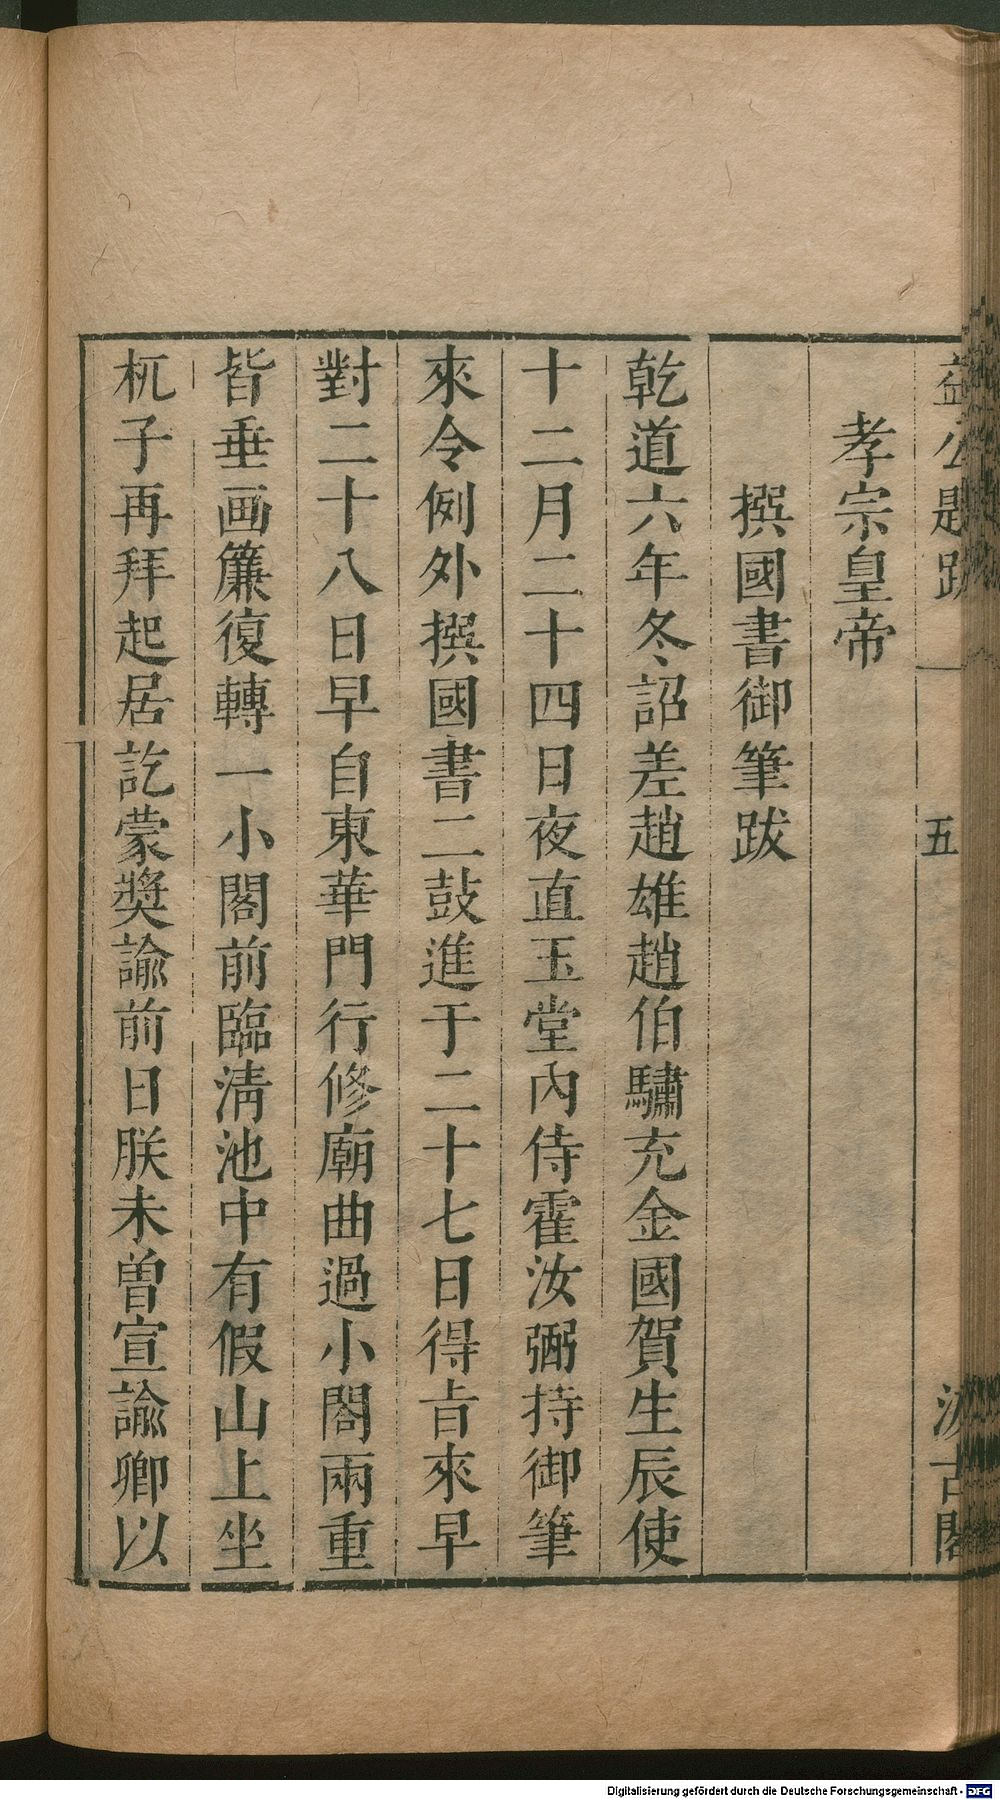 益公題跋 一 五 汲古閣
孝宗皇帝
撰國書御筆跋
乾道六年冬詔差趙雄趙伯驌充金國賀生辰使
十二月二十四日夜直玉堂內侍霍汝弼持御筆
來令例外撰國書二鼓進于二十七日得旨來早
對二十八日早自東華門行修廟曲過小閤兩重
皆垂画簾復轉一小閣前臨清池中有假山上坐
杌子再拜起居訖蒙奬諭前日朕未曽宣諭卿以
Digitalisierung gefördert durch die Deutsche Forschungsgemeinschaft - DFG